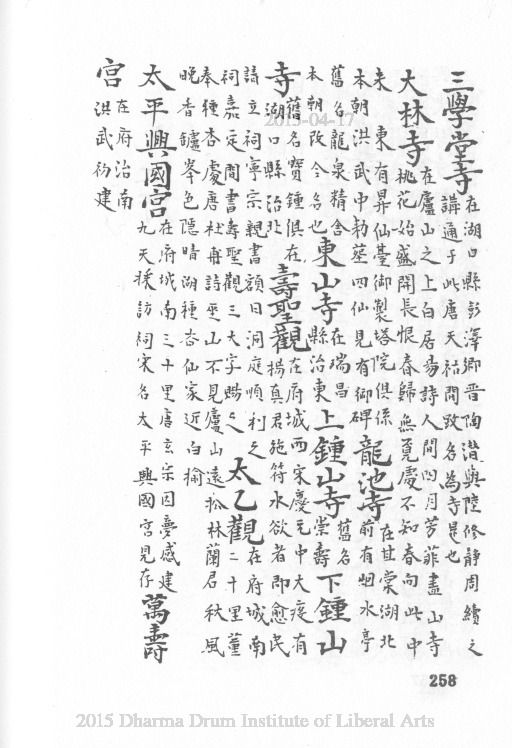 三學堂寺 在湖口縣彭澤鄉晉陶潛與陸修靜周續之
講通于此唐天祐間致名為寺是也
大林寺 在廬山之上白居易詩人間四月芳菲盡山寺
桃花始盛開長恨春歸無覓處不知春向此中
来 東有昇仙臺御製塔院俱係
本朝洪武中勅葬四仙見有御碑
龍池寺 在甘棠湖北
前有烟水亭
舊名龍泉精舍
本朝改今名也
東山寺 在瑞昌
縣治東
上鍾山寺 舊名
崇壽
下鍾山
寺 舊名寶鍾俱在
湖口縣治北
壽聖觀 在府城西宋慶元中大疫有
楊真君施符水欲者即愈民
請立祠寧宗親書額曰洞庭順利之
祠嘉定間書壽聖觀三大字賜之
太乙觀 在府城南
二十里董
奉種杏處唐杜甫詩巫山不見廬山遠松林蘭若秋風
晚香鑪峯色隱晴湖種杏仙家近白榆
太平興國宮 在府城南三十里唐玄宗因夢感建
九天採訪祠宋名太平興國宮見存
萬壽
宮 在府治南
洪武初建
258
2015-04-17
2015 Dharma Drum Institute of Liberal Arts